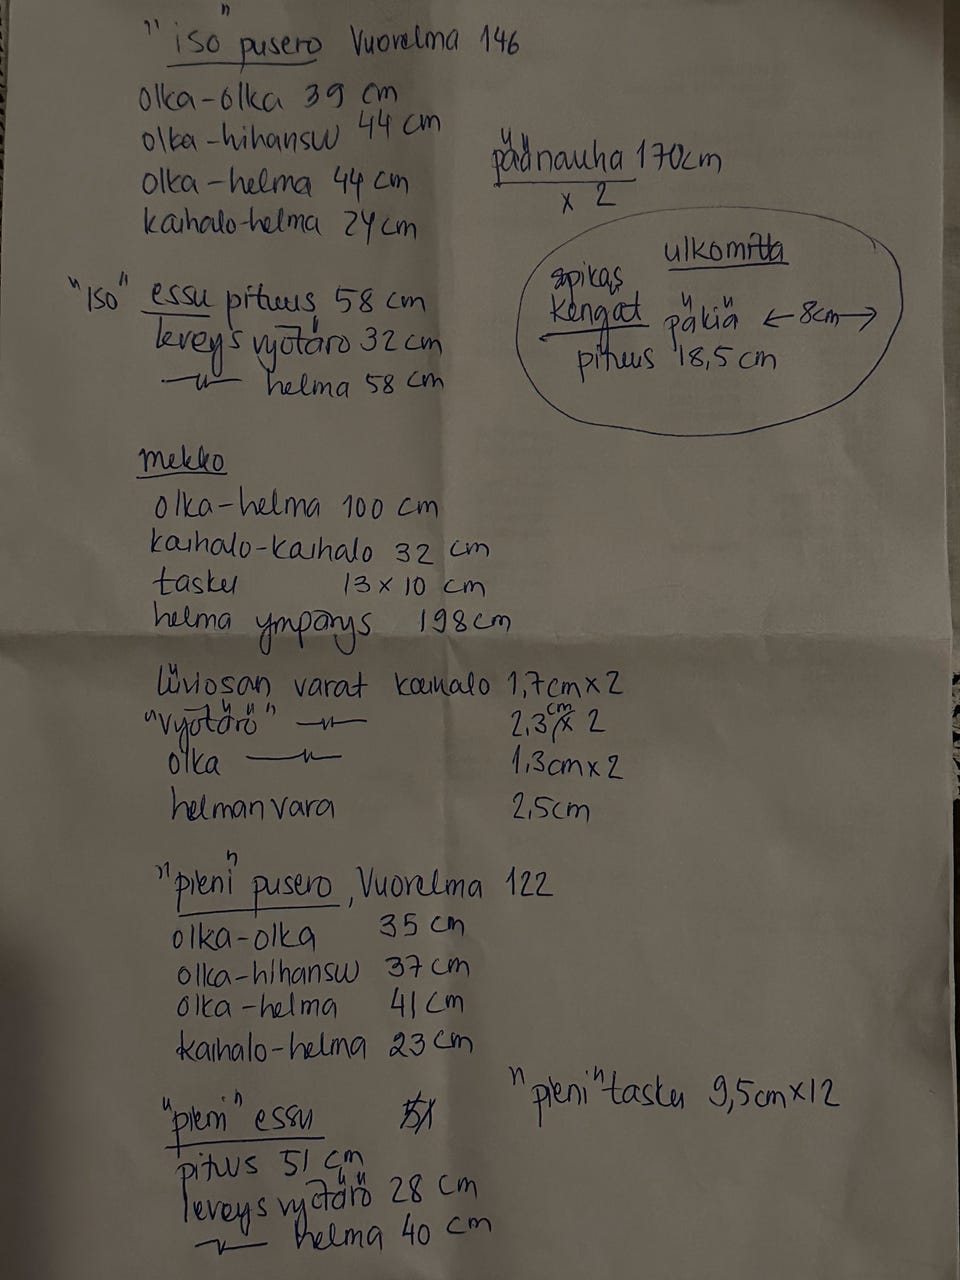 "iso" pusero Vuorelma 146
olka-olka 39 cm
olka-hihansuu 44 cm
olka-helma 44 cm
kaihalo-helma 24 cm
päänauha 170cm
x 2
ulkomitta
kengät päkiä ← 8cm →
pituus 18,5 cm
"iso" essu pituus 58 cm
leveys vyötärö 32 cm
-"- helma 58 cm
mekko
olka-helma 100 cm
kaihalo-kaihalo 32 cm
tasku 13 x 10 cm
helma ympärys 198cm
liiviosan varat kainalo 1,7cm x 2
"vyötärö" -"- 2,3cm x 2
olka -"- 1,3cm x 2
helman vara 2,5cm
"pieni" pusero, Vuorelma 122
olka-olka 35 cm
olka-hihansuu 37 cm
olka-helma 41 cm
kaihalo-helma 23 cm
"pieni" tasku 9,5cm x 12
"pieni" essu
pituus 51 cm
leveys vyötärö 28 cm
-"- helma 40 cm